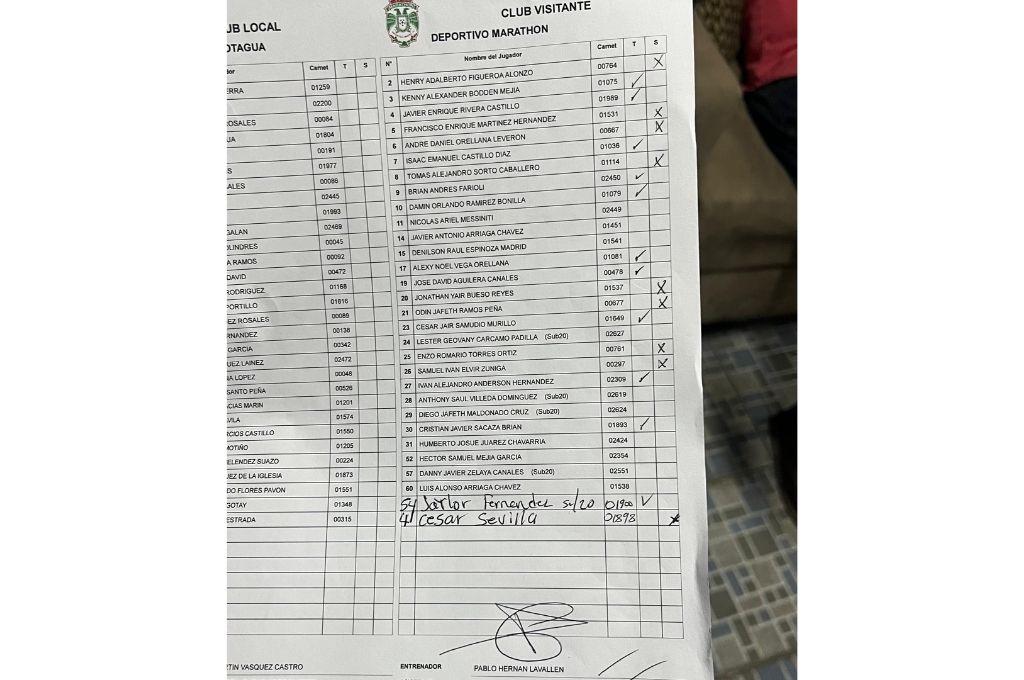 UB LOCAL
OTAGUA
dor Carnet T S
ERRA 01259
02200
ROSALES 00084
JA 01804
00191
S 01977
ALES 00086
02445
01993
GALAN 02469
OLINDRES 00045
A RAMOS 00092
DAVID 00472
RODRIGUEZ 01168
PORTILLO 01816
EZ ROSALES 00089
RNANDEZ 00138
GARCIA 00342
UEZ LAINEZ 02472
NA LOPEZ 00048
SANTO PEÑA 00526
ACIAS MARIN 01201
VILA 01574
RCIOS CASTILLO 01550
MOTIÑO 01205
MELENDEZ SUAZO 00224
UEZ DE LA IGLESIA 01873
DO FLORES PAVON 01551
GOTAY 01348
ESTRADA 00315
RTIN VASQUEZ CASTRO
CLUB VISITANTE
DEPORTIVO MARATHON
N° Nombre del Jugador Carnet T S
2 HENRY ADALBERTO FIGUEROA ALONZO 00764 X
3 KENNY ALEXANDER BODDEN MEJIA 01075 ✓
4 JAVIER ENRIQUE RIVERA CASTILLO 01989 ✓
5 FRANCISCO ENRIQUE MARTINEZ HERNANDEZ 01531 X
6 ANDRE DANIEL ORELLANA LEVERON 00667 X
7 ISAAC EMANUEL CASTILLO DIAZ 01036 ✓
8 TOMAS ALEJANDRO SORTO CABALLERO 01114 X
9 BRIAN ANDRES FARIOLI 02450 ✓
10 DAMIN ORLANDO RAMIREZ BONILLA 01079 ✓
11 NICOLAS ARIEL MESSINITI 02449
14 JAVIER ANTONIO ARRIAGA CHAVEZ 01451
15 DENILSON RAUL ESPINOZA MADRID 01541
17 ALEXY NOEL VEGA ORELLANA 01081 ✓
19 JOSE DAVID AGUILERA CANALES 00478 ✓
20 JONATHAN YAIR BUESO REYES 01537 X
21 ODIN JAFETH RAMOS PEÑA 00677 X
23 CESAR JAIR SAMUDIO MURILLO 01649 ✓
24 LESTER GEOVANY CARCAMO PADILLA (Sub20) 02627
25 ENZO ROMARIO TORRES ORTIZ 00761 X
26 SAMUEL IVAN ELVIR ZUNIGA 00297 X
27 IVAN ALEJANDRO ANDERSON HERNANDEZ 02309 ✓
28 ANTHONY SAUL VILLEDA DOMINGUEZ (Sub20) 02619
29 DIEGO JAFETH MALDONADO CRUZ (Sub20) 02624
30 CRISTIAN JAVIER SACAZA BRIAN 01893 ✓
31 HUMBERTO JOSUE JUAREZ CHAVARRIA 02424
52 HECTOR SAMUEL MEJIA GARCIA 02354
57 DANNY JAVIER ZELAYA CANALES (Sub20) 02551
60 LUIS ALONSO ARRIAGA CHAVEZ 01538
54 Jarlor Fernandez su/20 01900 ✓
41 Cesar Sevilla 01898 X
ENTRENADOR PABLO HERNAN LAVALLEN